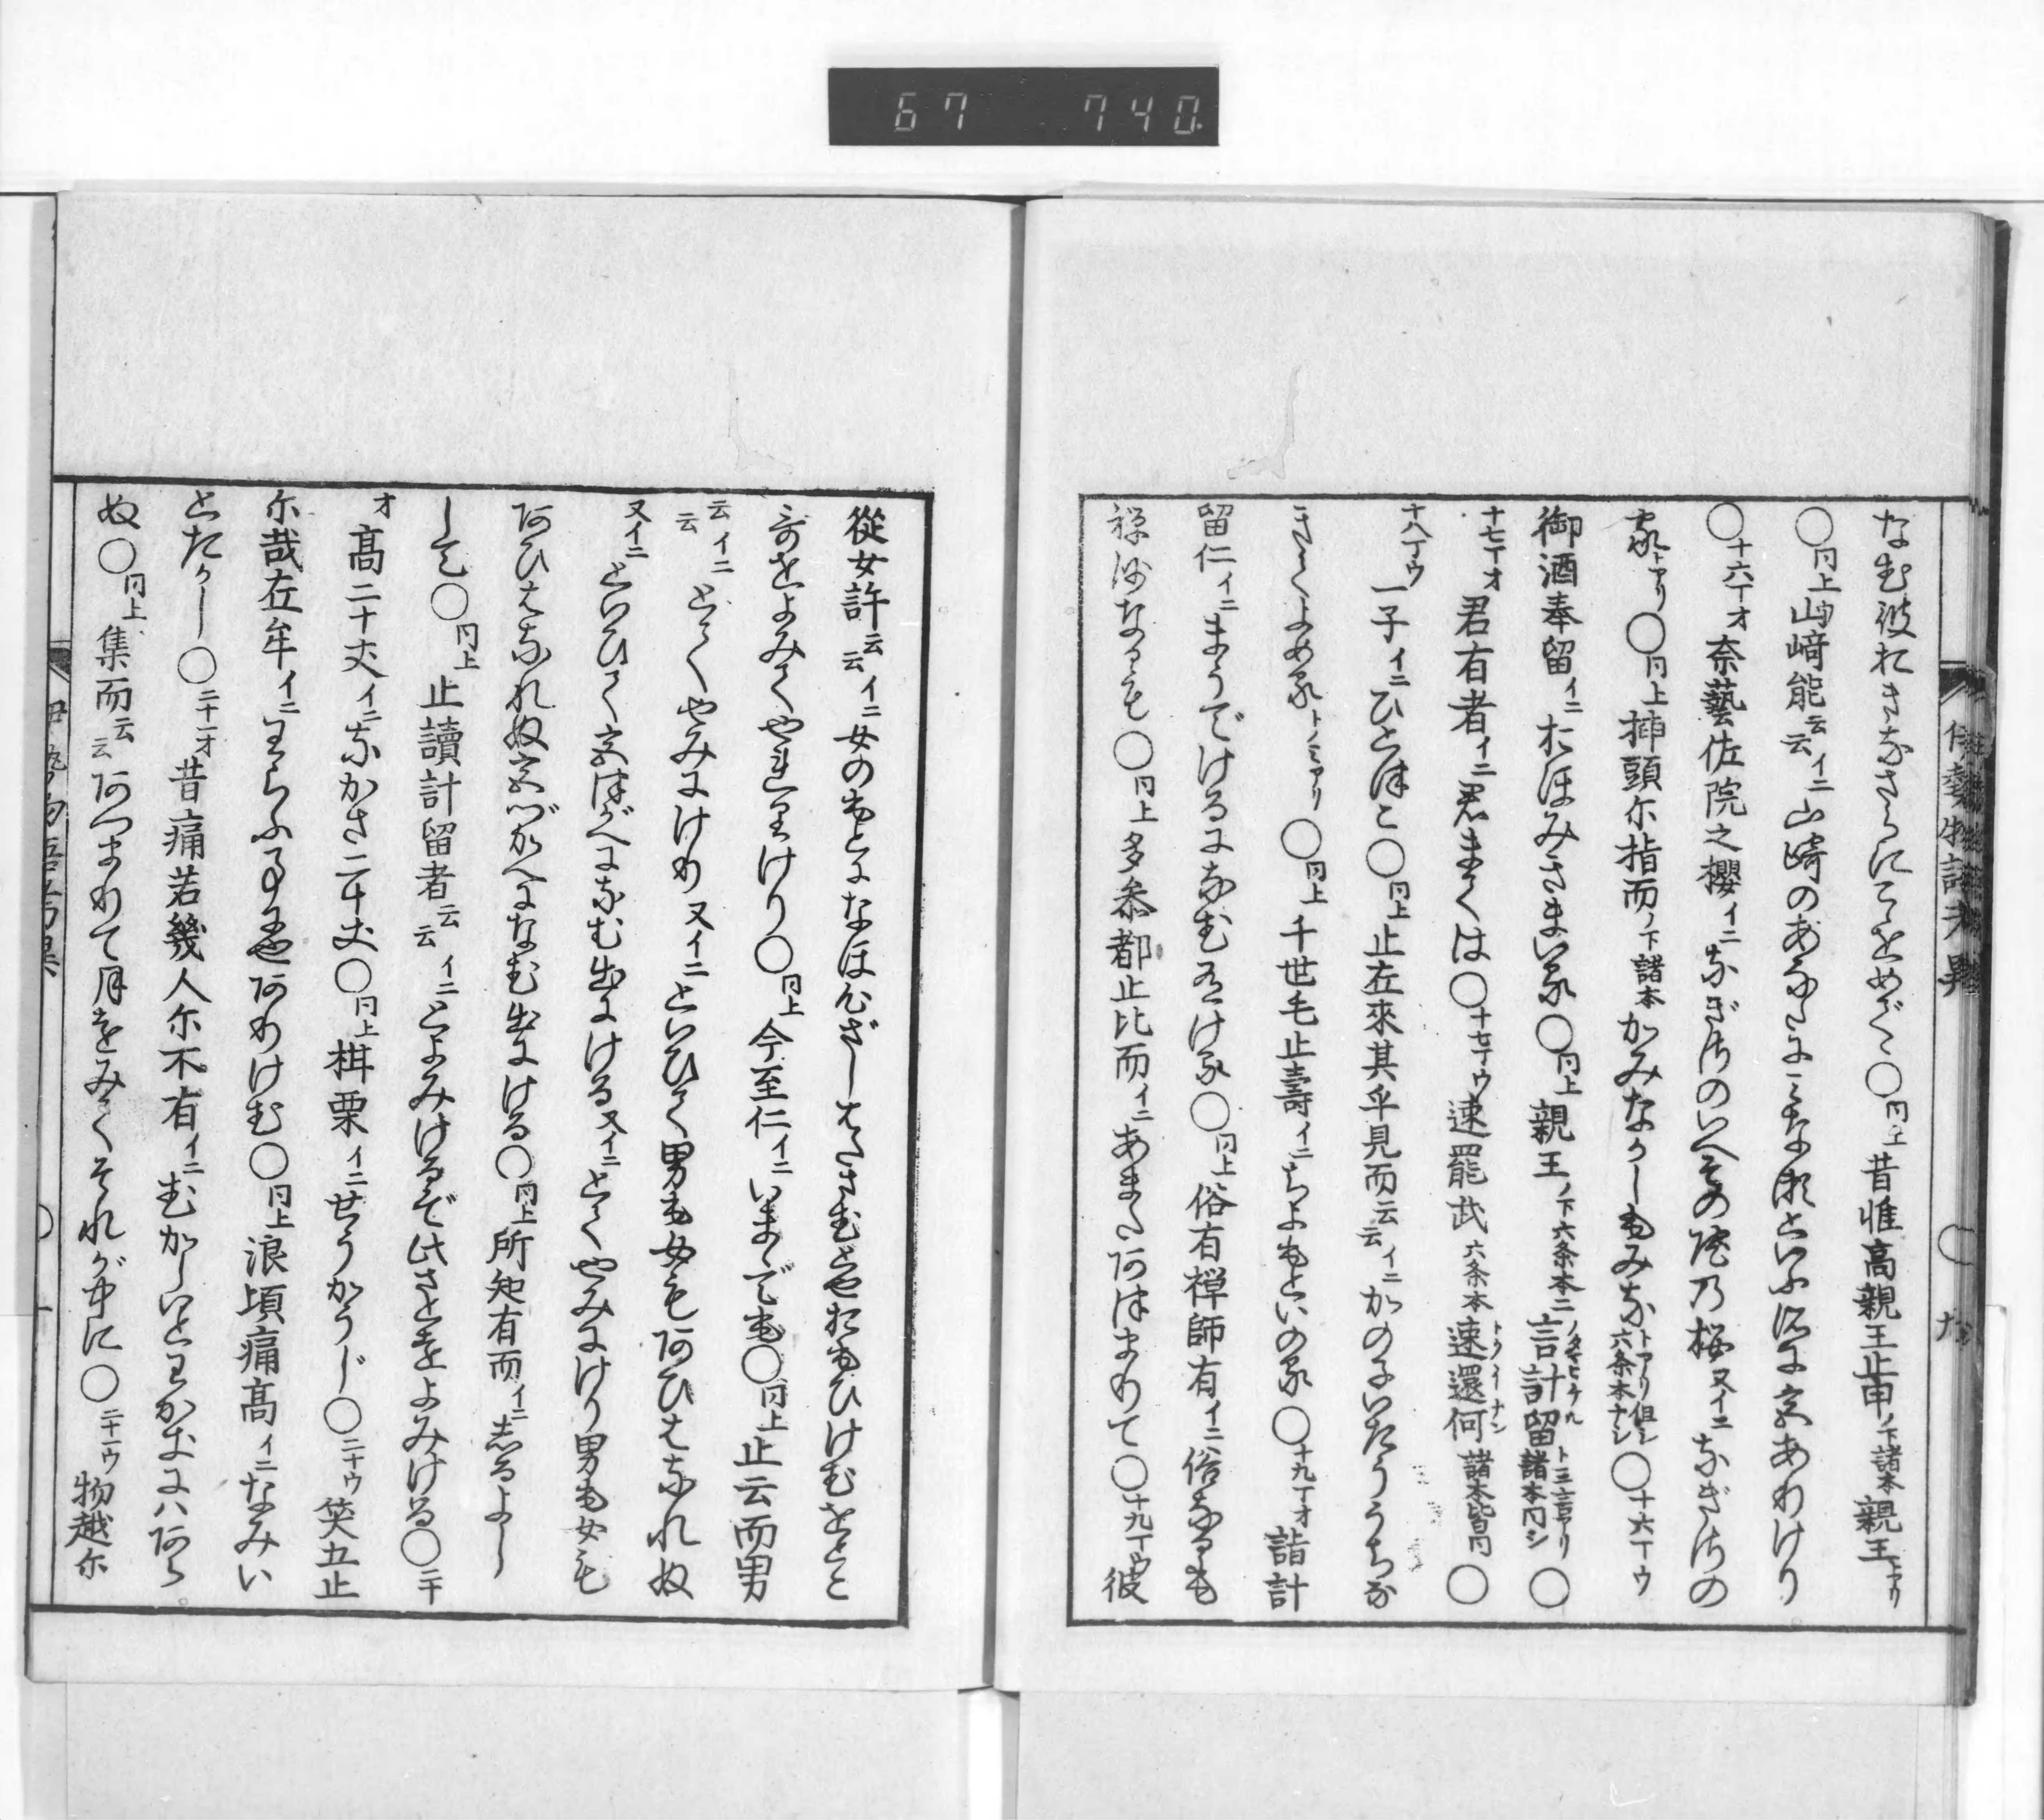 67 740
なむ彼れきなさらにことめで〻○円上昔惟高親王止申ノ下諸本親王トアリ
○円上山﨑能云云イニ山崎のあなたにみな瀬といふ所に宮ありけり
○十六丁オ奈藝佐院之櫻イニなぎさのいへその院乃桜又イニなぎさの
家トアリ○円上揷頭尓指而ノ下諸本かみなかしもみなトアリ但シ六条本ナシ○十六丁ウ
御酒奉留イニおほみきまいる○円上親王ノ下六条本ニ言計留ト三言アリ諸本円シ○
十七丁オ君有者イニ君まさは○十七丁ウ速罷武六条本速還何トクイナン諸本皆円○
十八丁ウ一子イニひとつこ○円上止左來其乎見而云云イニかの子いたううちな
きてよめるトノミアリ○円上千世毛止壽イニちよもといのる○十九丁オ詣計
留仁イニまうでけるになむ有ける○円上俗有禅師有イニ俗なるも
禅師なるも○円上多叅都止比而イニあまたあつまりて○十九丁ウ彼
從女許云云イニ女のもとになほ心ざしはたさむとやおもひけむをとこ
哥をよみてやれりけり○円上今至仁イニいまゝでも○円上止云而男
云云イニとてやみにけり又イニといひて男も女もあひはなれぬ
又イニといひて宮づかへになむ出にける又イニとてやみにけり男も女も
あひはなれぬ宮づかへになむ出にける○円上所知有而イニしるよし
して○円上止讀計留者云云イニとよみけるぞ此さとをよみける○二十
オ高二十丈イニながさ二十丈○円上柑栗イニせうかうじ○二十ウ笑五止
尓哉在牟イニわらふ事にや有けむ○円上浪頃痛高イニなみい
とたかし○二十一オ昔痛若幾人尓不有イニむかしいとわかきにはあら
ぬ○円上集而云云あつまりて月をみてそれが中に○二十一ウ物越尓